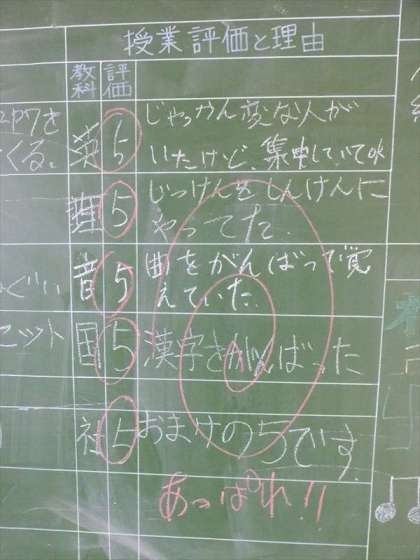 授業評価と理由
教科
評価
英 5 じゃっかん変な人が
いたけど、集中していてOK
理 5 じっけんをしんけんに
やってた。
音 5 曲をがんばって覚
えていた。
国 5 漢字をがんばった
社 5 おまけの5です。
あっぱれ!!
くる。
ぐい
セット